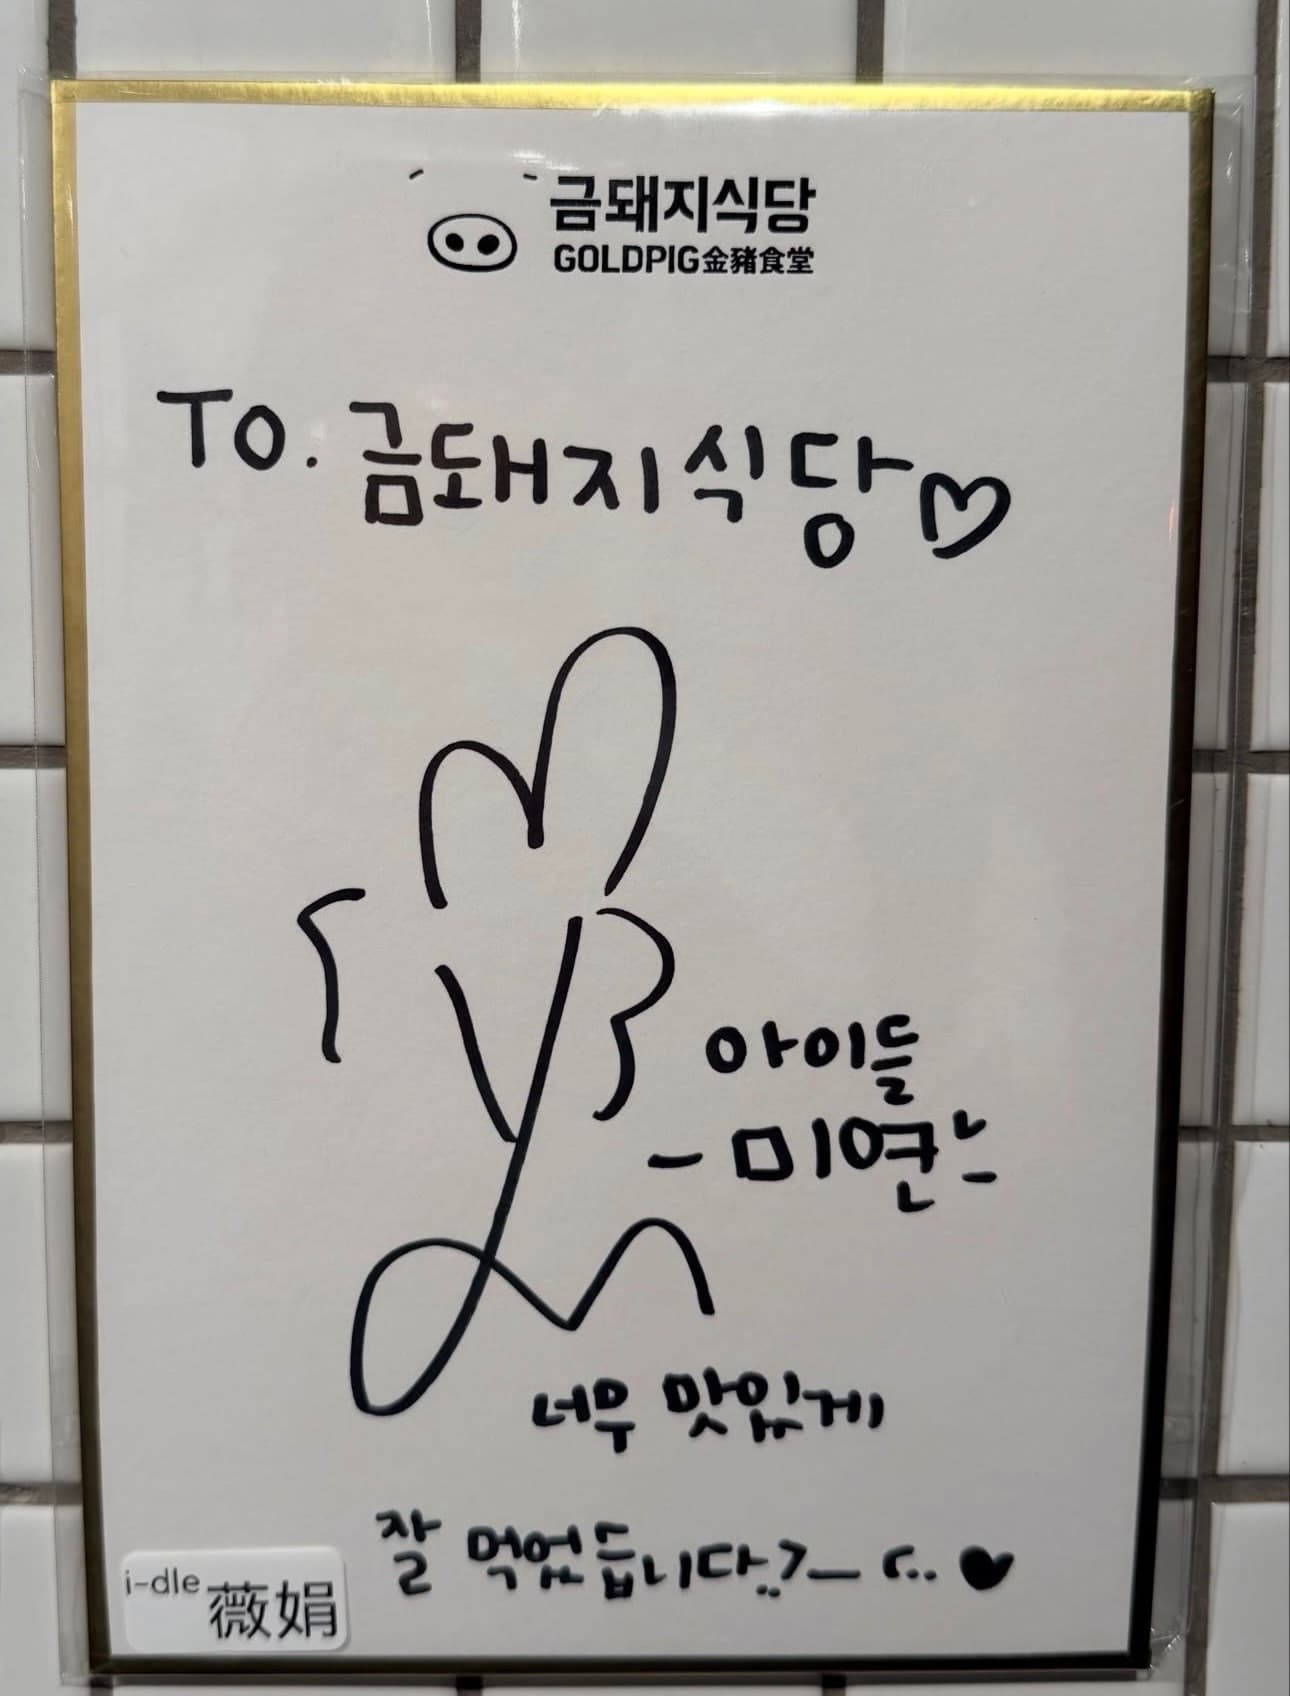 금돼지식당
GOLDPIG金豬食堂
TO. 금돼지식당♡
아이들
- 미연
너무 맛있게
잘 먹었습니다 ♥
i-dle 薇娟